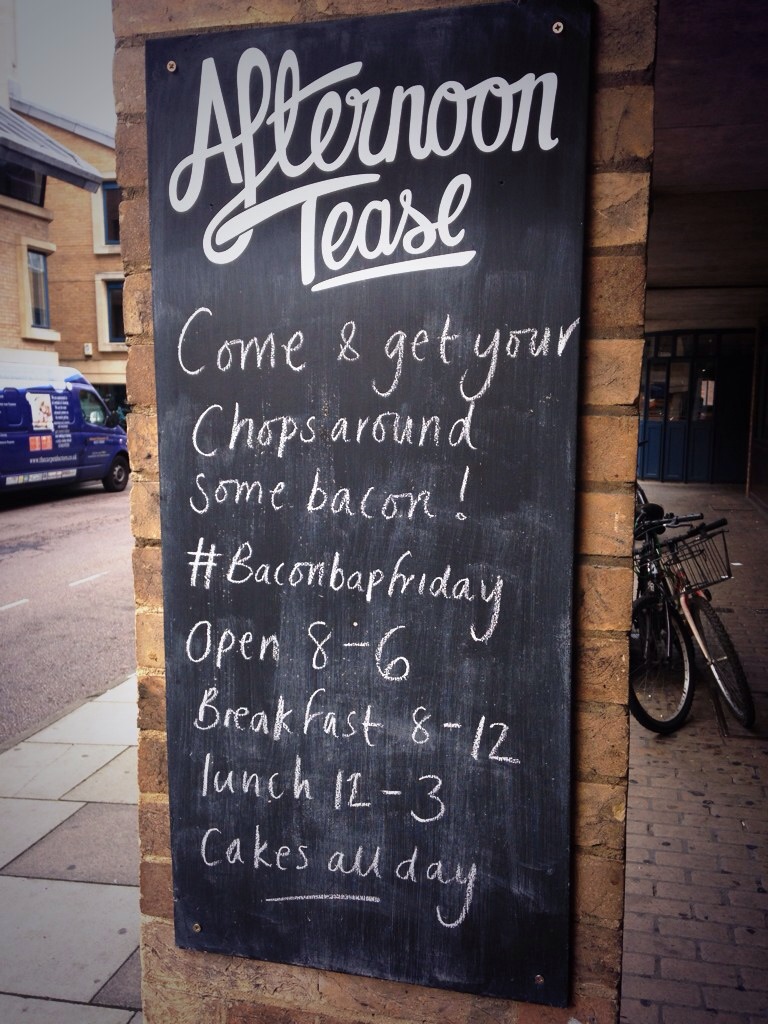 Afternoon
Tease
Come & get your
Chops around
some bacon!
#Baconbapfriday
Open 8-6
Breakfast 8-12
lunch 12-3
Cakes all day